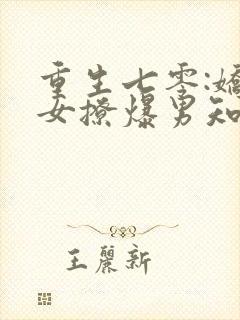 重生七零:嬌
女撩爆男知
王麗新